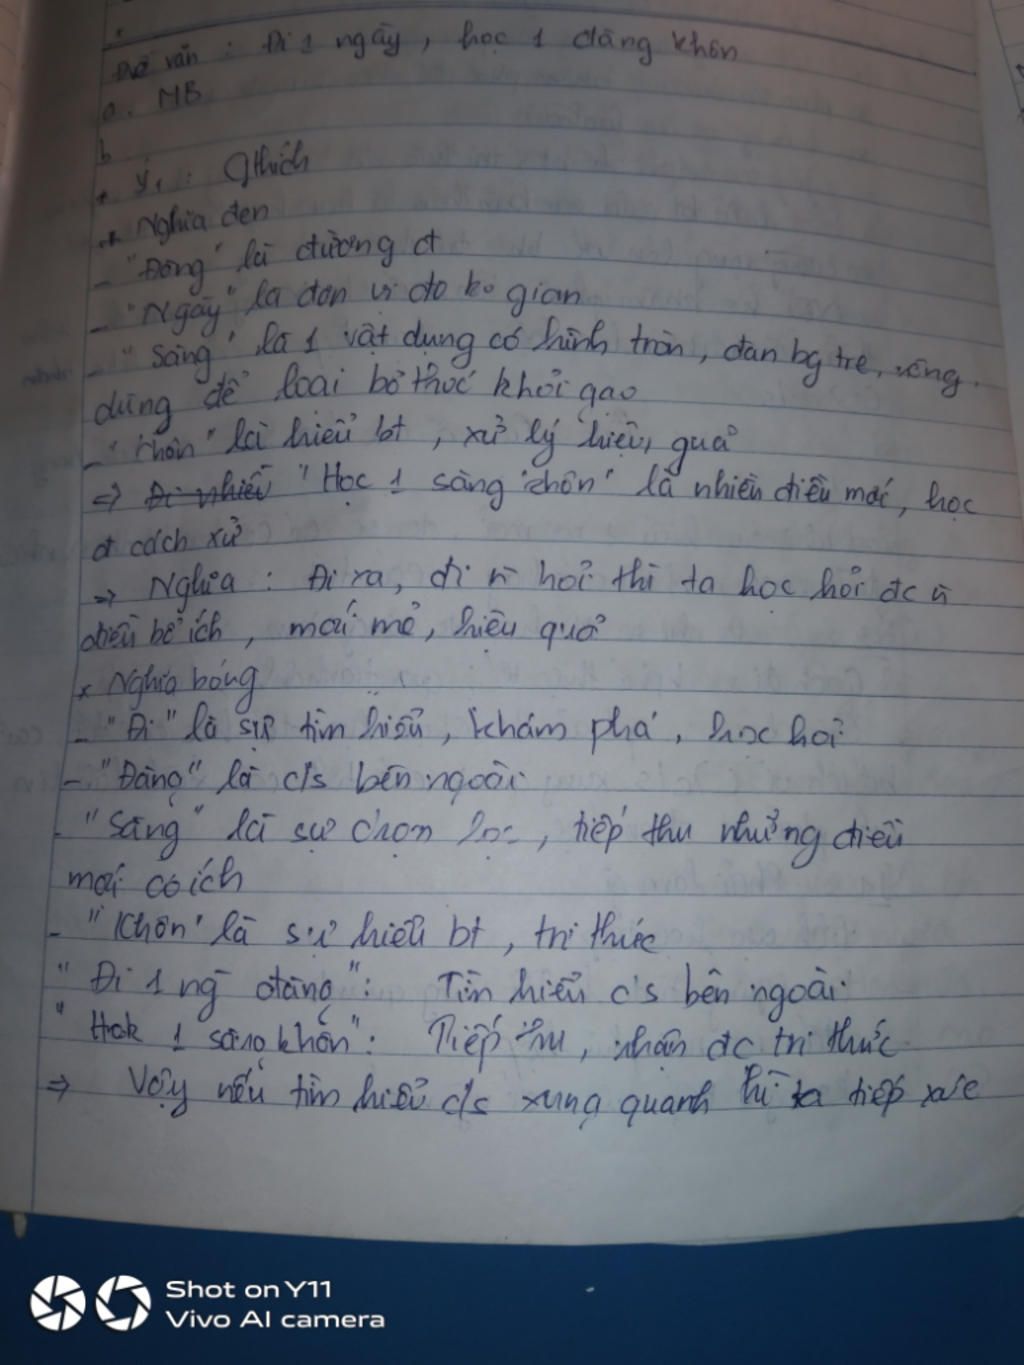 văn : Đi 1 ngày, học 1 đàng khôn
a. MB
b
* ý1: Gthích
+ Nghĩa đen
- "Đàng" là đường đ
- "Ngày" là đơn vị đo ko gian
- "Sàng" là 1 vật dụng có hình tròn, đan bg tre, vông.
dùng để loại bỏ thóc khỏi gạo
- "Khôn" là hiểu bt, xử lý hiệu quả
=> Đi nhiều "Học 1 sàng khôn" là nhiều điều mới, học
đ cách xử
=> Nghĩa : Đi ra, đi n hỏi thì ta học hỏi đc n
điều bổ ích, mới mẻ, hiệu quả
* Nghĩa bóng
- "Đi" là sự tìm hiểu, khám phá, học hỏi
- "Đàng" là c/s bên ngoài
- "Sàng" là sự chọn lọc, tiếp thu những điều
mới có ích
- "Khôn" là sự hiểu bt, tri thức
"Đi 1 ng đàng": Tìm hiểu c/s bên ngoài
"Hok 1 sàng khôn": Tiếp thu, nhận đc tri thức
=> Vậy nếu tìm hiểu c/s xung quanh thì ta tiếp xúc
Shot on Y11
Vivo AI camera